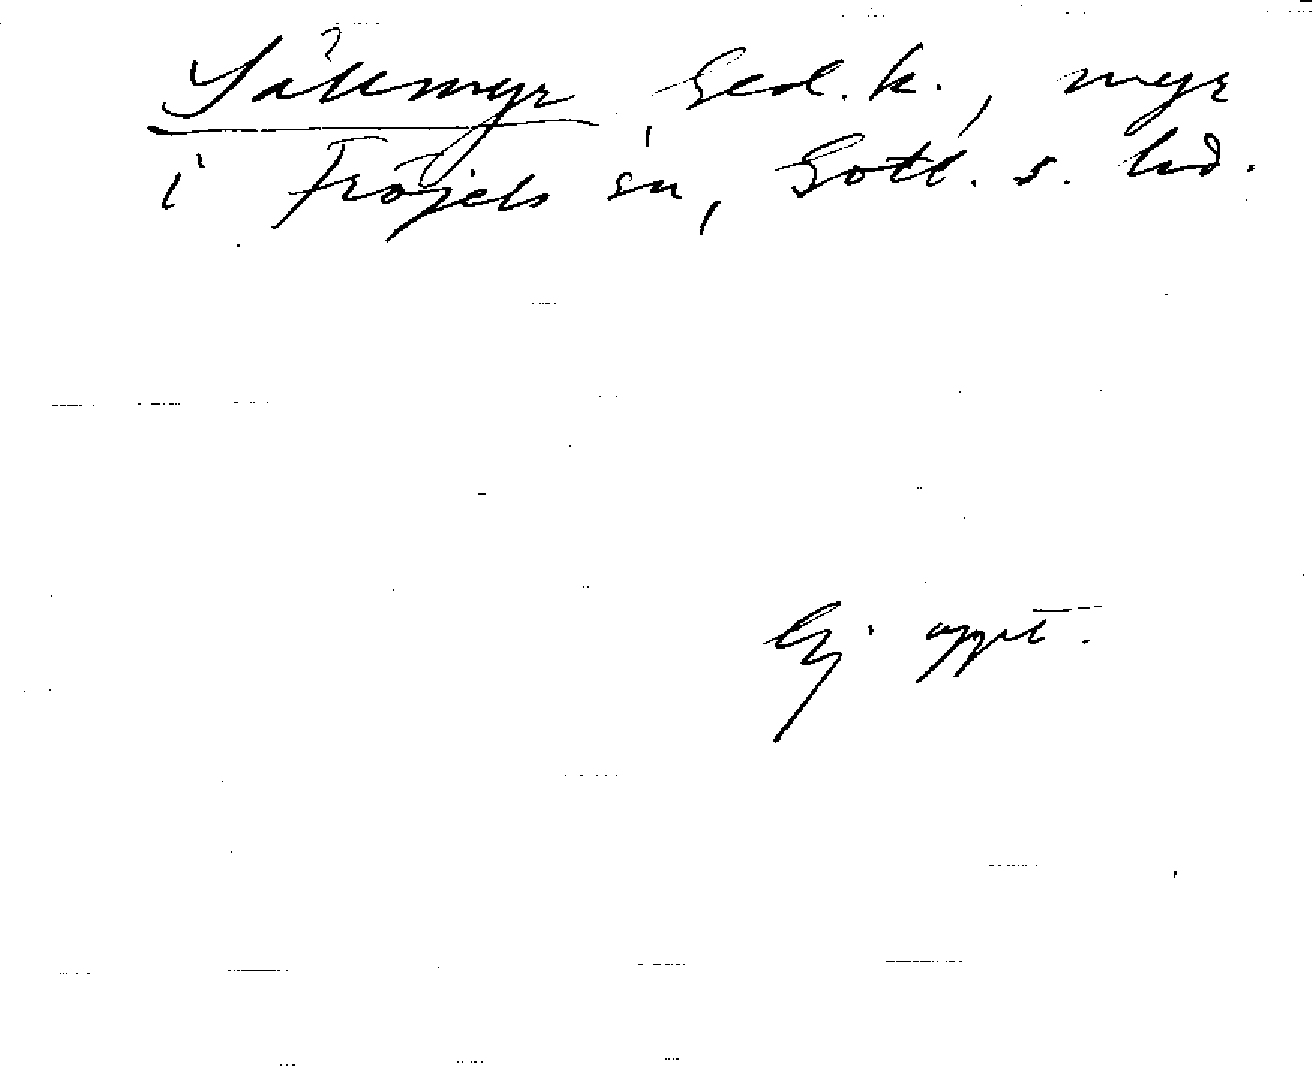 Såltmyr, Ged. k., myr
i Fröjels sn, Gotl. s. hd.
Ej uppt.